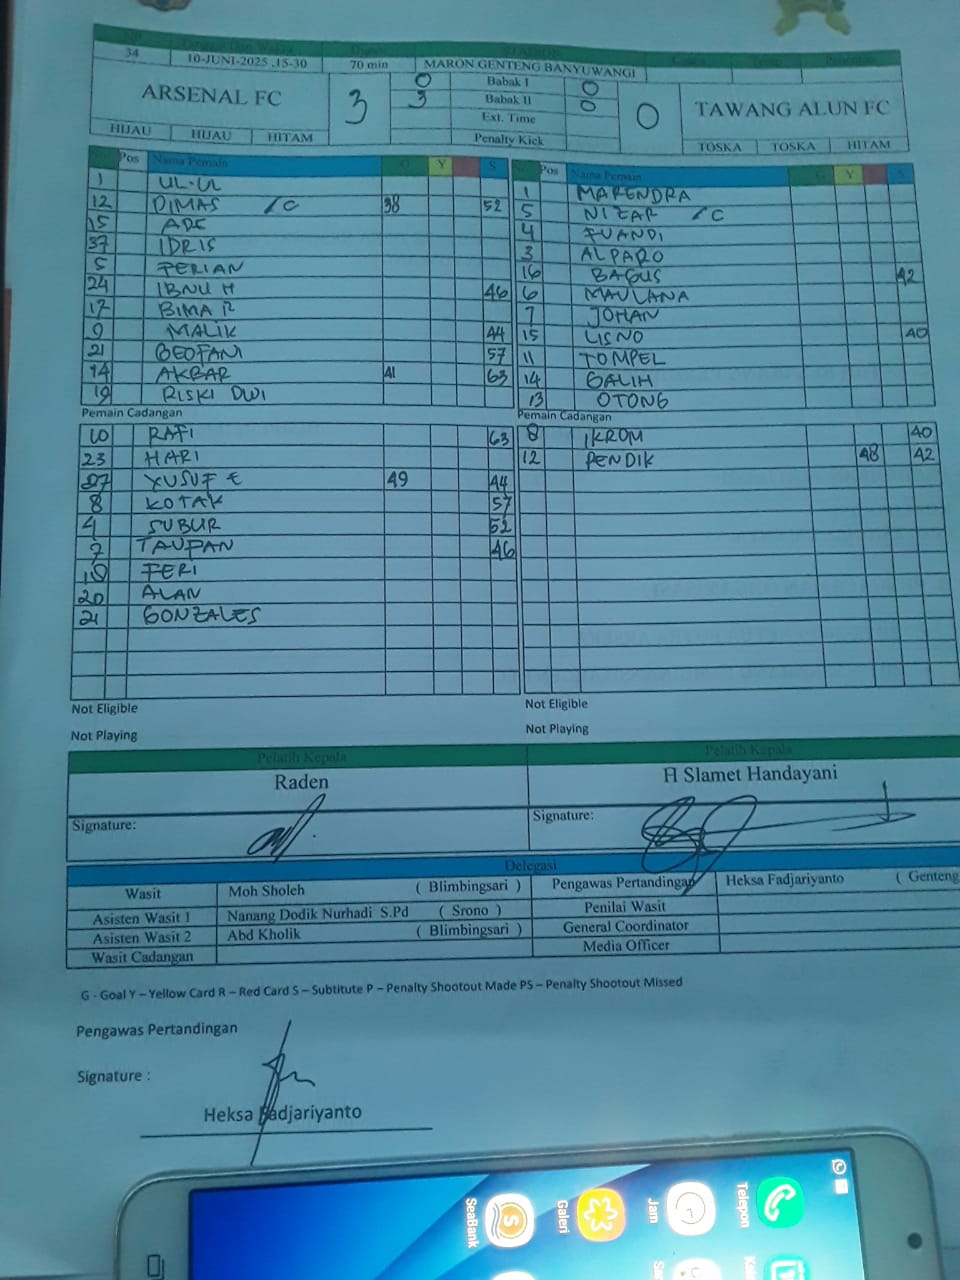 34 10-JUNI-2025 ,15-30 70 min MARON GENTENG BANYUWANGI
ARSENAL FC 3 0 Babak I 0 0 TAWANG ALUN FC
3 Babak II 0
Ext. Time
Penalty Kick
HIJAU HIJAU HITAM TOSKA TOSKA HITAM
Pos Nama Pemain G Y S
1 UL-UL
12 DIMAS /C 38 52
15 ADE
37 IDRIS
5 FERIAN
24 IBNU H 46
17 BIMA R
9 MALIK 44
21 GEOFANI 57
14 AKBAR 41 63
19 RISKI DWI
Pemain Cadangan
10 RAFI 63
23 HARI
27 YUSUF E 49 44
8 KOTAK 57
4 SUBUR 52
7 TAUPAN 46
FERI
20 ALAN
21 GONZALES
Not Eligible
Not Playing
Pos Nama Pemain G Y S
1 MARENDRA
5 NIZAR /C
4 FUANDI
3 ALPARO
16 BAGUS 42
6 MAULANA
7 JOHAN
15 LISNO 40
11 TOMPEL
14 GALIH
13 OTONG
Pemain Cadangan
8 IKROM 40
12 PENDIK 48 42
Not Eligible
Not Playing
Pelatih Kepala Pelatih Kepala
Raden H Slamet Handayani
Signature: Signature:
Delegasi
Wasit Moh Sholeh ( Blimbingsari ) Pengawas Pertandingan Heksa Fadjariyanto ( Genteng
Asisten Wasit 1 Nanang Dodik Nurhadi S.Pd ( Srono ) Penilai Wasit
Asisten Wasit 2 Abd Kholik ( Blimbingsari ) General Coordinator
Wasit Cadangan Media Officer
G - Goal Y – Yellow Card R – Red Card S – Subtitute P – Penalty Shootout Made PS – Penalty Shootout Missed
Pengawas Pertandingan
Signature :
Heksa Fadjariyanto
SeaBank
Galeri
Jam
Telepon